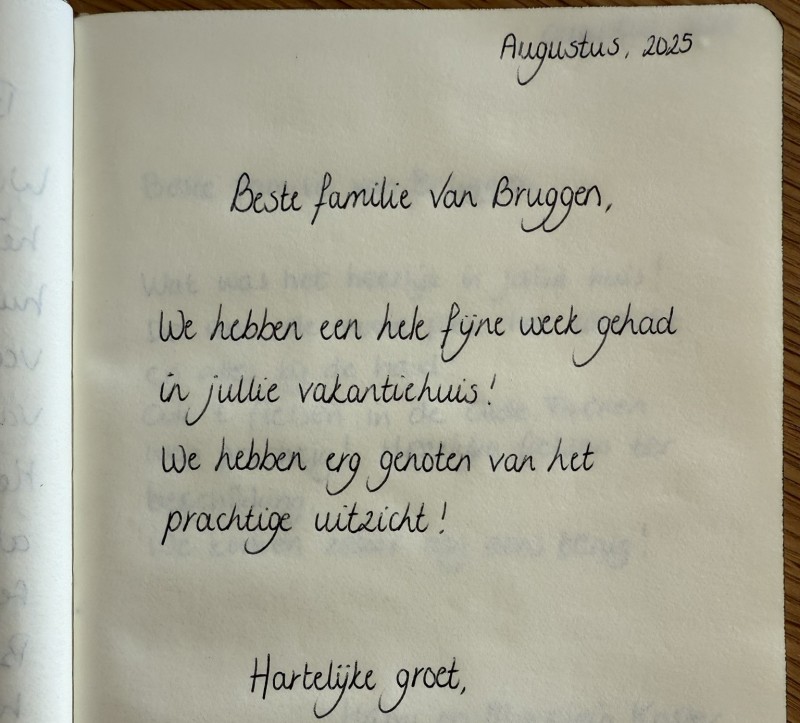 Augustus, 2025
Beste familie Van Bruggen,
We hebben een hele fijne week gehad
in jullie vakantiehuis!
We hebben erg genoten van het
prachtige uitzicht!
Hartelijke groet,